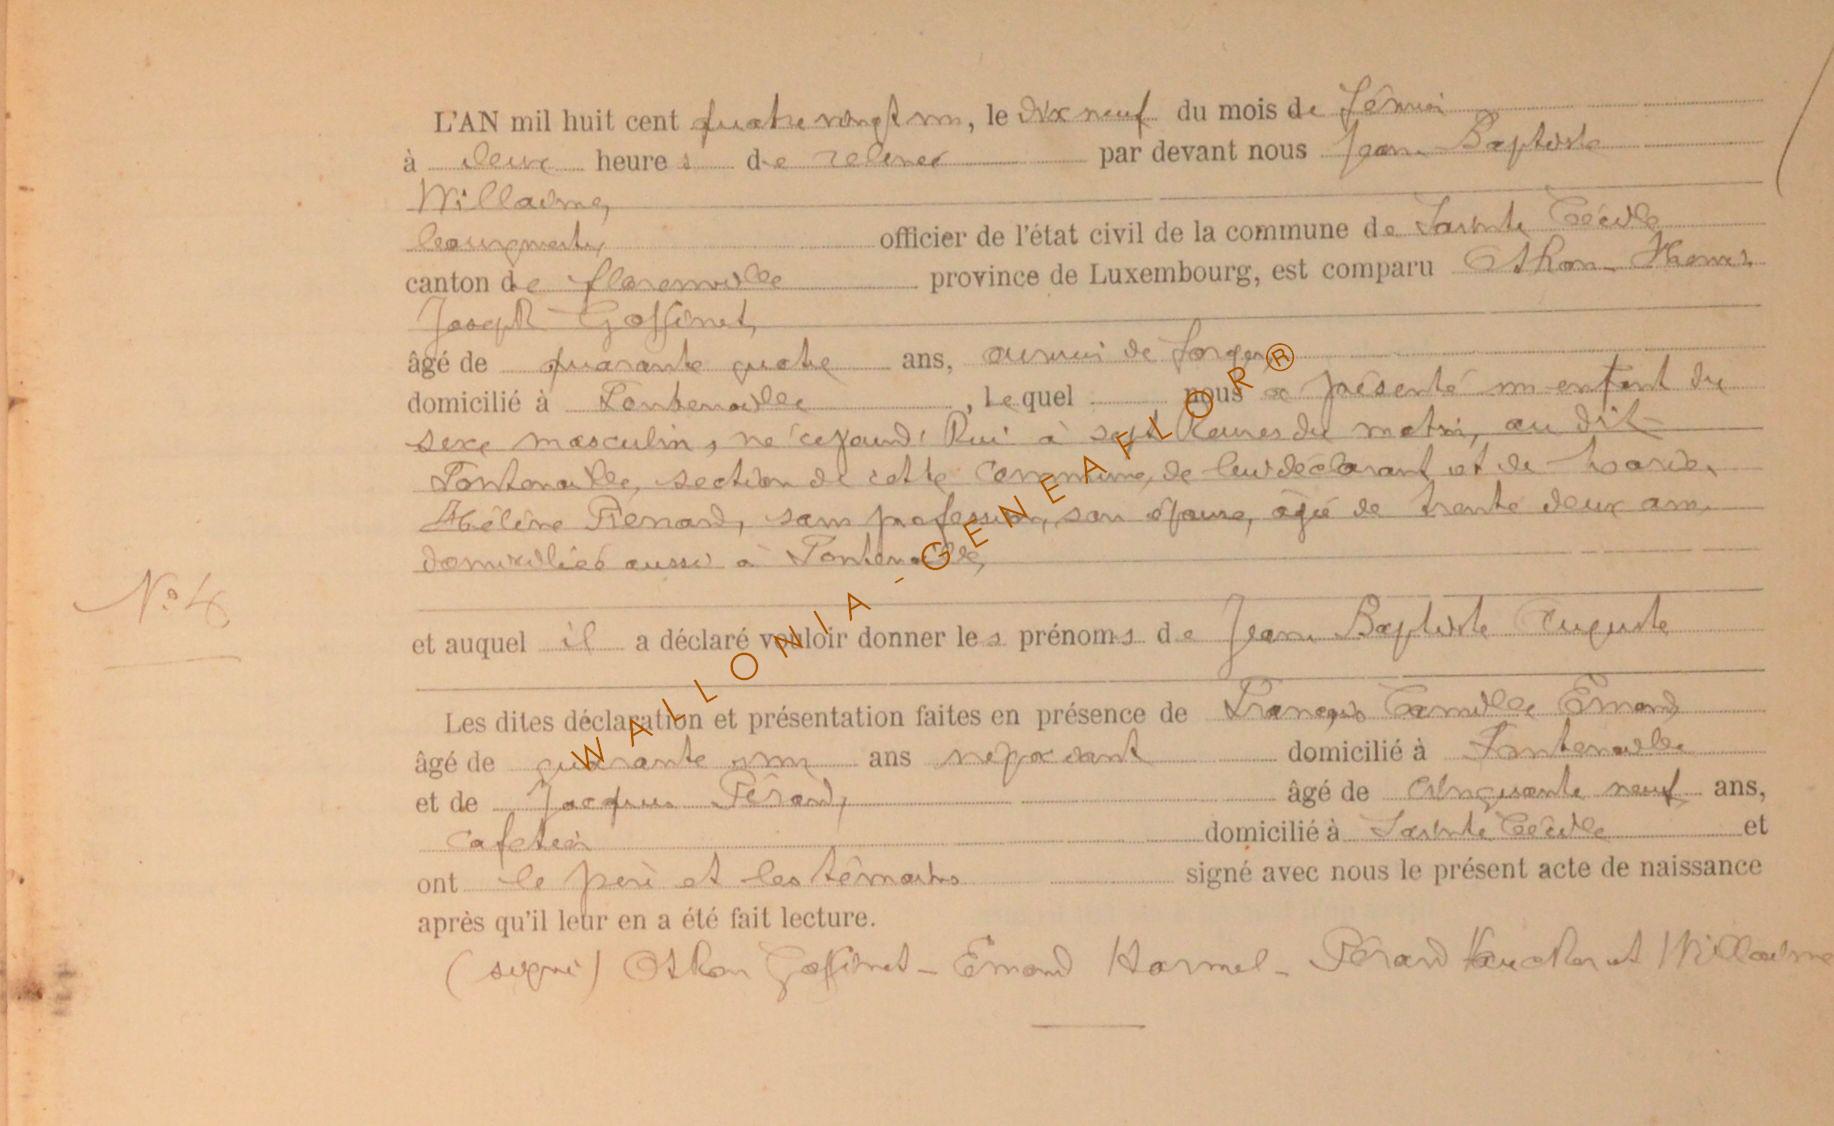 L'AN mil huit cent quatre vingt un, le dix neuf du mois de février
à deux heures de relevée par devant nous Jean Baptiste
Willaime,
bourgmestre officier de l'état civil de la commune de Sainte Cécile
canton de florenville province de Luxembourg, est comparu Othon Henri
Joseph Goffinet,
âgé de quarante quatre ans, ouvrier de forges
domicilié à Fontenoille, Lequel nous a présenté un enfant du
sexe masculin, né cejourd'hui à sept heures du matin, au dit
Fontenoille, section de cette commune, de lui déclarant et de Marie
Hélène Renard, sans profession, son épouse, âgée de trente deux ans
domiciliés aussi à Fontenoille,
N° 4
et auquel il a déclaré vouloir donner les prénoms de Jean Baptiste Auguste
Les dites déclaration et présentation faites en présence de François Camille Emond
âgé de quarante un ans négociant domicilié à Fontenoille
et de Jacques Pérard, âgé de cinquante neuf ans,
cafetier domicilié à Sainte Cécile et
ont le père et les témoins signé avec nous le présent acte de naissance
après qu'il leur en a été fait lecture.
(signé) Othon Goffinet - Emond Harmel - Pérard et Willaime
WALLONIA - GENEAFLOR®